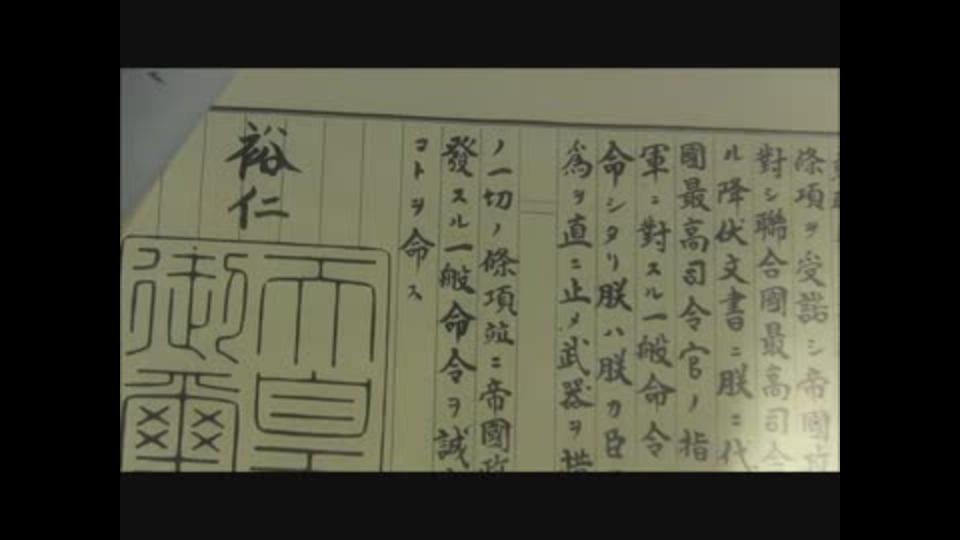 條項ヲ受諾シ帝國政
對シ聯合國最高司令
ル降伏文書ニ朕ニ代
國最高司令官ノ指
軍ニ對スル一般命令
命シタリ朕ハ朕カ臣
爲ヲ直ニ止メ武器ヲ措
ノ一切ノ條項竝ニ帝國政
發スル一般命令ヲ誠
コトヲ命ス
裕仁
天皇
御璽